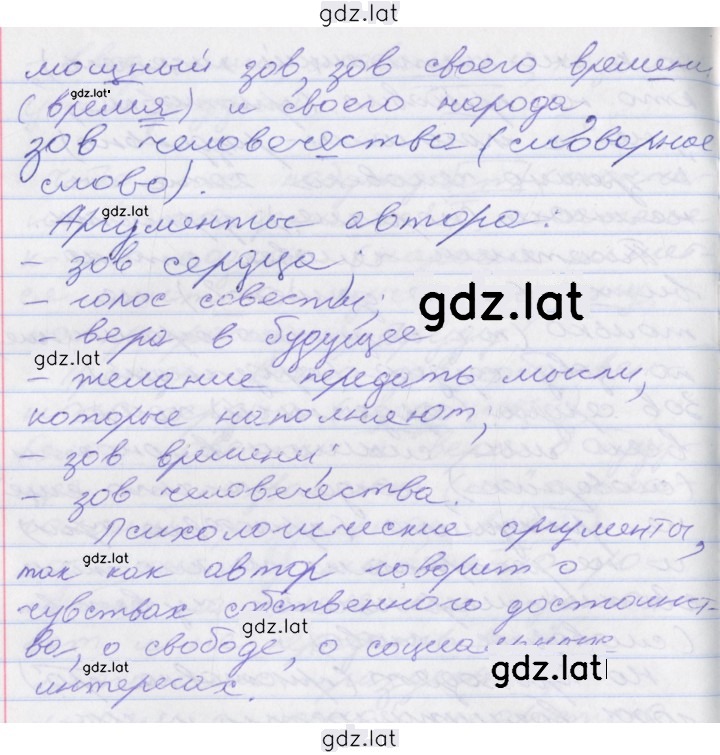 gdz.lat
мощный зов, зов своего времени
gdz.lat
(время) и своего народа,
зов человечества (словарное
слово).
gdz.lat
Аргументы автора:
- зов сердца;
- голос совести;
gdz.lat
- вера в будущее
gdz.lat
- желание передать мысли,
которые наполняют,
- зов времени,
gdz.lat
- зов человечества.
Психологические аргументы,
gdz.lat
так как автор говорит о
чувствах собственного достоинст-
gdz.lat
ва, о свободе, о социальных
gdz.lat
gdz.lat
интересах.
gdz.lat